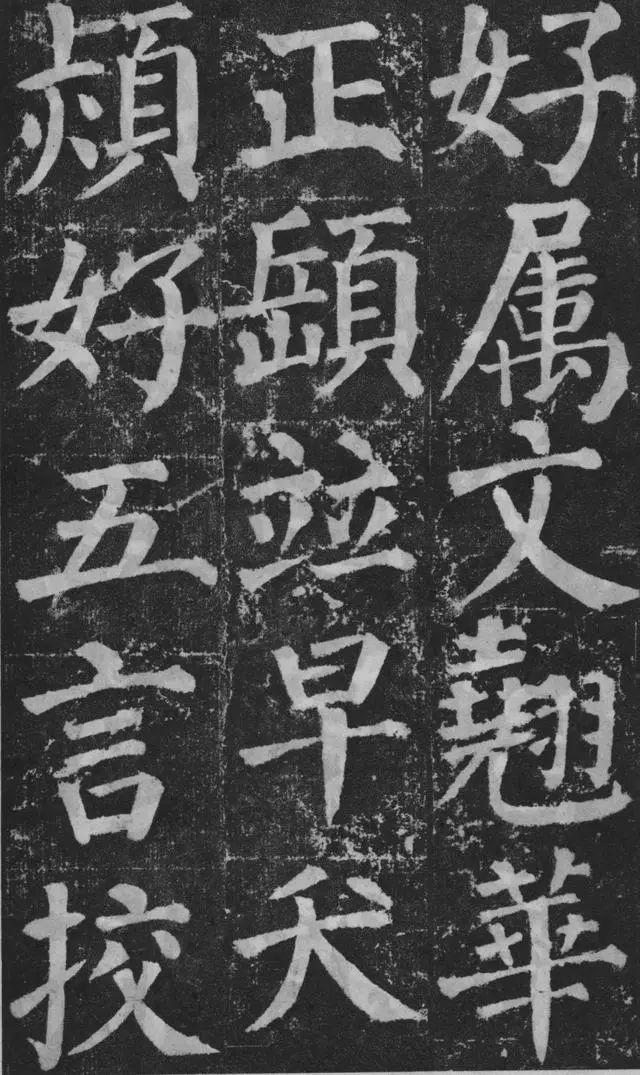 好属文翹華
正頤並早夭
熲好五言挍